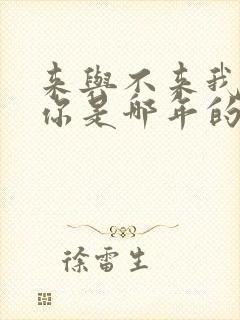 来與不来我
你是哪年的
徐雷生